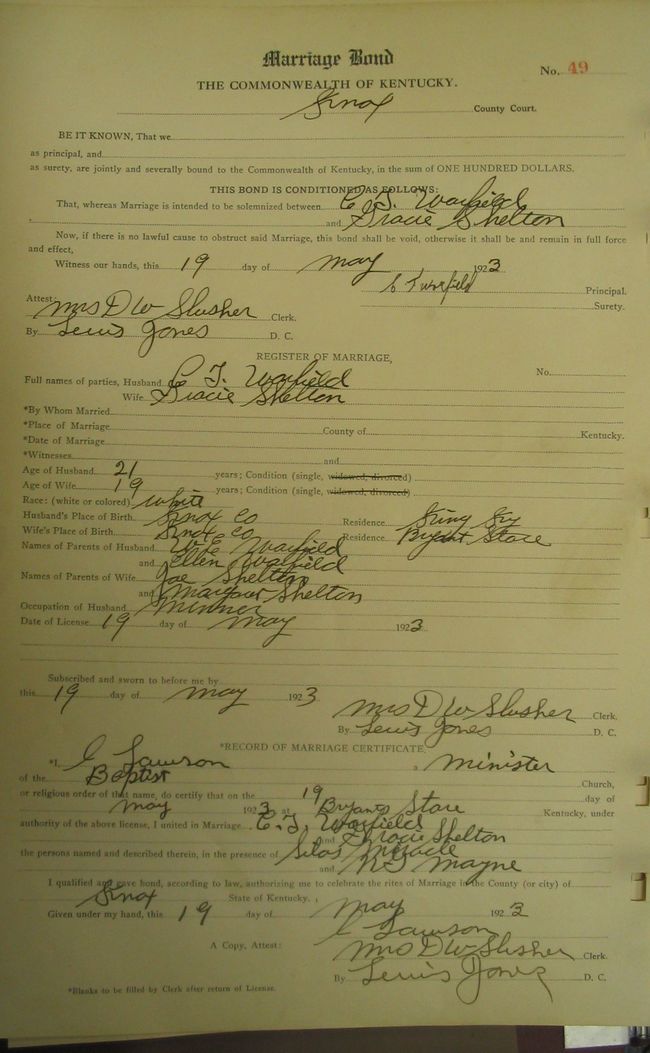 Marriage Bond
No. 49
THE COMMONWEALTH OF KENTUCKY.
Knox County Court.
BE IT KNOWN, That we
as principal, and
as surety, are jointly and severally bound to the Commonwealth of Kentucky, in the sum of ONE HUNDRED DOLLARS.
THIS BOND IS CONDITIONED AS FOLLOWS:
That, whereas Marriage is intended to be solemnized between C. T. Warfield
and Gracie Shelton
Now, if there is no lawful cause to obstruct said Marriage, this bond shall be void, otherwise it shall be and remain in full force
and effect,
Witness our hands, this 19 day of may 1923
C T Warfield Principal.
Surety.
Attest:
Mrs D W Slusher Clerk.
By Lewis Jones D. C.
REGISTER OF MARRIAGE,
No.
Full names of parties, Husband C. T. Warfield
Wife Gracie Shelton
*By Whom Married
*Place of Marriage County of Kentucky.
*Date of Marriage
*Witnesses and
Age of Husband 21 years; Condition (single, widowed, divorced)
Age of Wife 19 years; Condition (single, widowed, divorced)
Race: (white or colored) White
Husband's Place of Birth Knox Co Residence
Wife's Place of Birth Knox Co Residence Bryant Store
Names of Parents of Husband Warfield
and Ellen Warfield
Names of Parents of Wife Joe Shelton
and Margaret Shelton
Occupation of Husband Minner
Date of License 19 day of may 1923
Subscribed and sworn to before me by
this 19 day of may 1923
Mrs D W Slusher Clerk.
By Lewis Jones D. C.
*RECORD OF MARRIAGE CERTIFICATE.
*I, C Lawson, minister
of the Baptist Church,
or religious order of that name, do certify that on the 19 day of
may 1923 at Bryants Store Kentucky, under
authority of the above license, I united in Marriage C. T. Warfield
and Gracie Shelton
the persons named and described therein, in the presence of Silas Miracle
and Mayne
I qualified and gave bond, according to law, authorizing me to celebrate the rites of Marriage in the County (or city) of
Knox State of Kentucky.
Given under my hand, this 19 day of may 1923
C Lawson
A Copy, Attest: Mrs D W Slusher Clerk.
By Lewis Jones D. C.
*Blanks to be filled by Clerk after return of License.